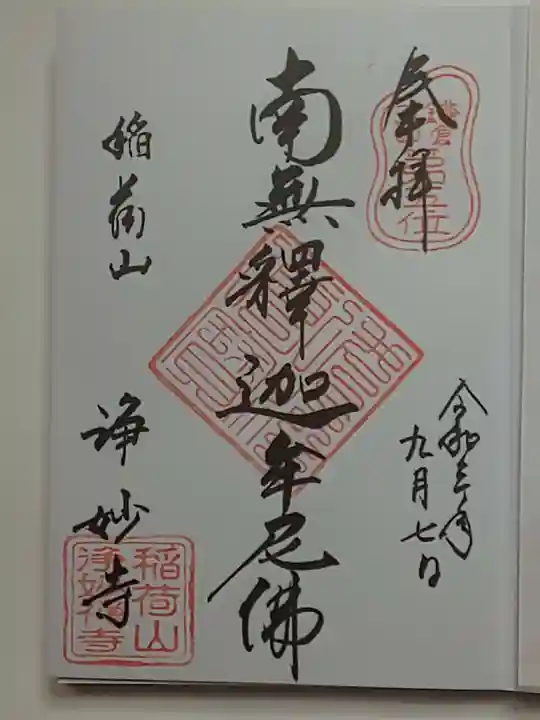 奉拝
鎌倉
第五位
令和三年
九月七日
南無釋迦牟尼佛
稲荷山
浄妙寺
稲荷山
浄妙禅寺